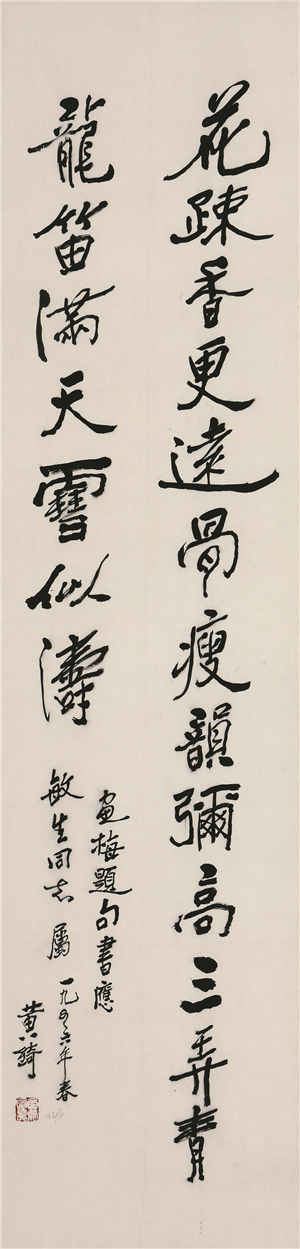 花疎香更遠骨瘦韻彌高三弄青
龍笛滿天雪似濤
畫梅題句書應
敏生同志屬 一九五六年春
黄綺